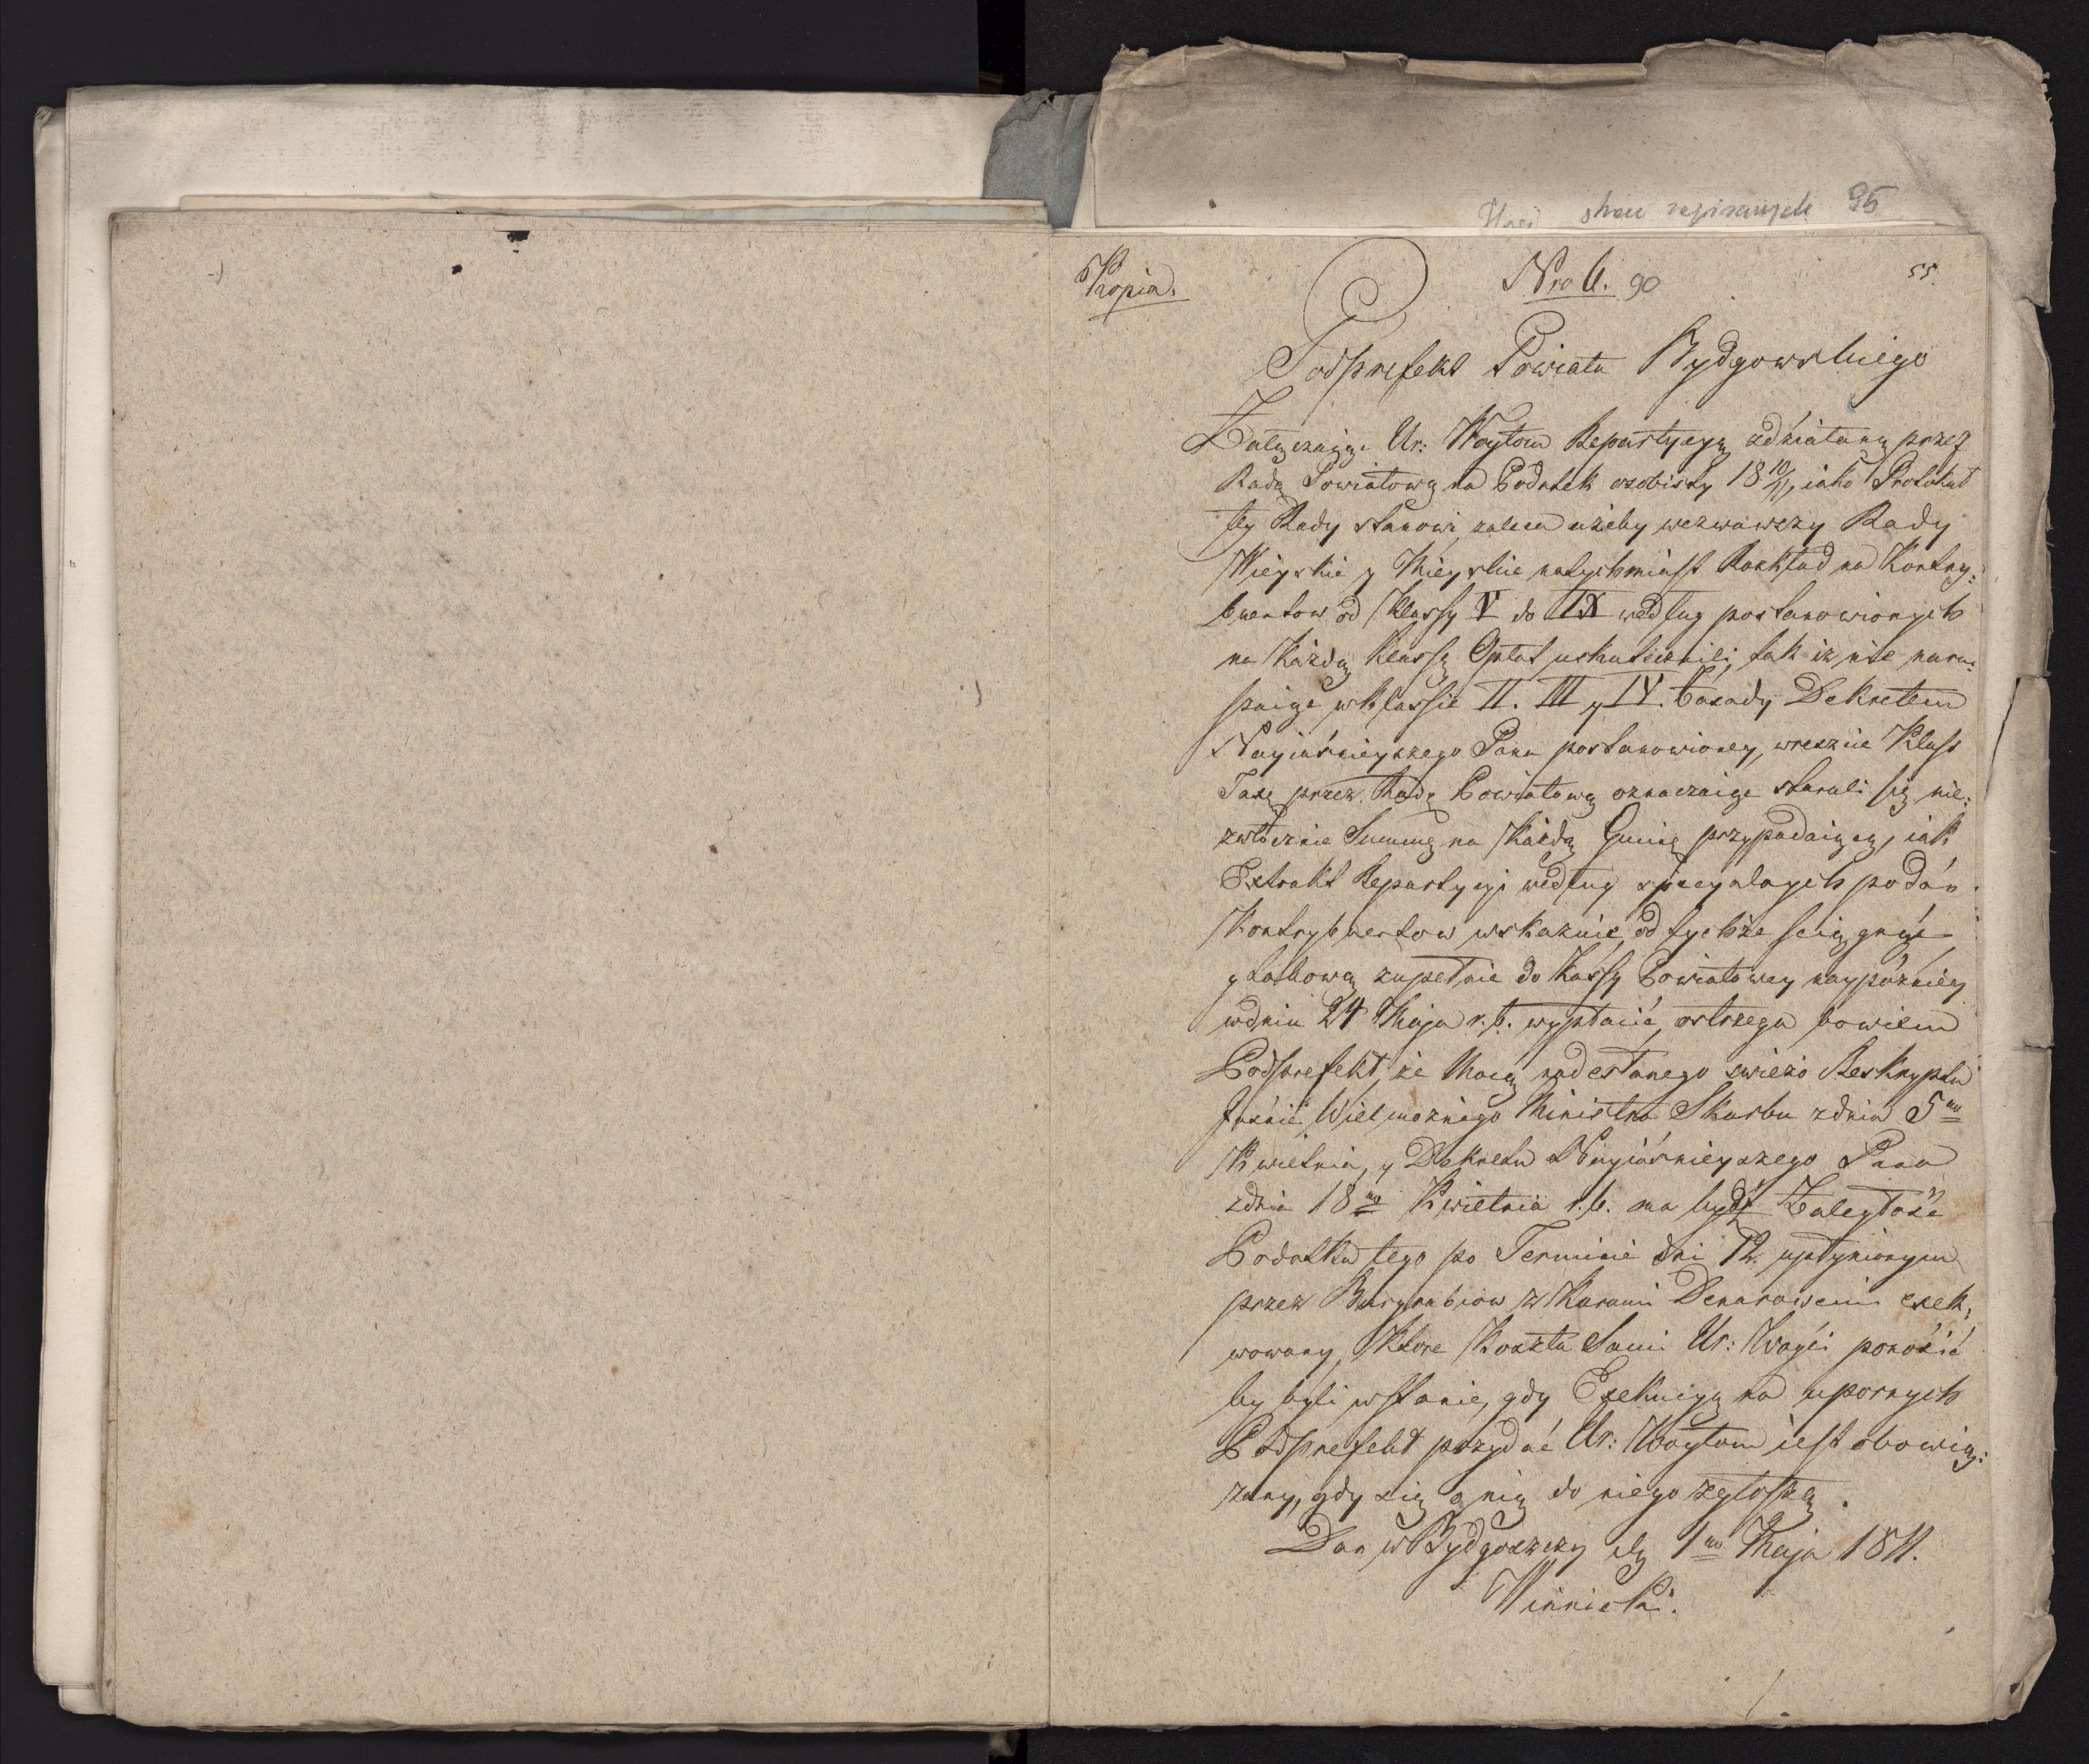 stron zapisanych 95
Kopia. Nro 6. 90 55.
Podprefekt Powiatu Bydgowskiego
Załączaiąc Ur: Woytom Repartycyą zdziałaną przez
Radę Powiatową na Podatek osobisty 18 10/11, iako Protokuł
tey Rady stanowi, zaleca ażeby wezwawszy Rady
Wieyskie y Mieyskie natychmiast Rozkład na Kontry:
buentow od Klassy V do IX według postanowionych
na Każdą Klassę Opłat uskutecznili, tak iż nie naru:
szaiąc w klassie II. III y IV. Zasady Dekretem
Nayiaśnieyszego Pana postanowioney, wreszcie Klass
Taxę przez Radę Powiatową oznaczaiąc starali się nie:
zwłocznie Summę na Każdą Gminę przypadaiącą, iak
Extrakt Repartycyi według specyalnych podań
Kontrybuentow wskazuie, od tychże sciągnąć
y takową zupełnie do Kassy Powiatowey naypóźniey
w dniu 24 Maja r. b. wypłacić, ostrzega bowiem
Podprefekt, że Mocą nadesłanego swieżo Reskryptu
Jaśnie Wielmożnego Ministra Skarbu z dnia 5go
Kwietnia, y Dekretu Nayiaśnieyszego Pana
z dnia 18go Kwietnia r. b. ma bydź Zaległość
Podatku tego po Terminie dni 12. upłynionym
przez Burgrabiow z Karami exek:
wowany, Ktore Koszta Sami Ur: Woyci ponosić
by byli w stanie, gdy Exekucyą na upornych
Podprefekt przydać Ur: Woytom iest obowią:
zany, gdy się o nią do niego zgłoszą.
Dan w Bydgoszczy dn 1go Maja 1811.
Winnicki.